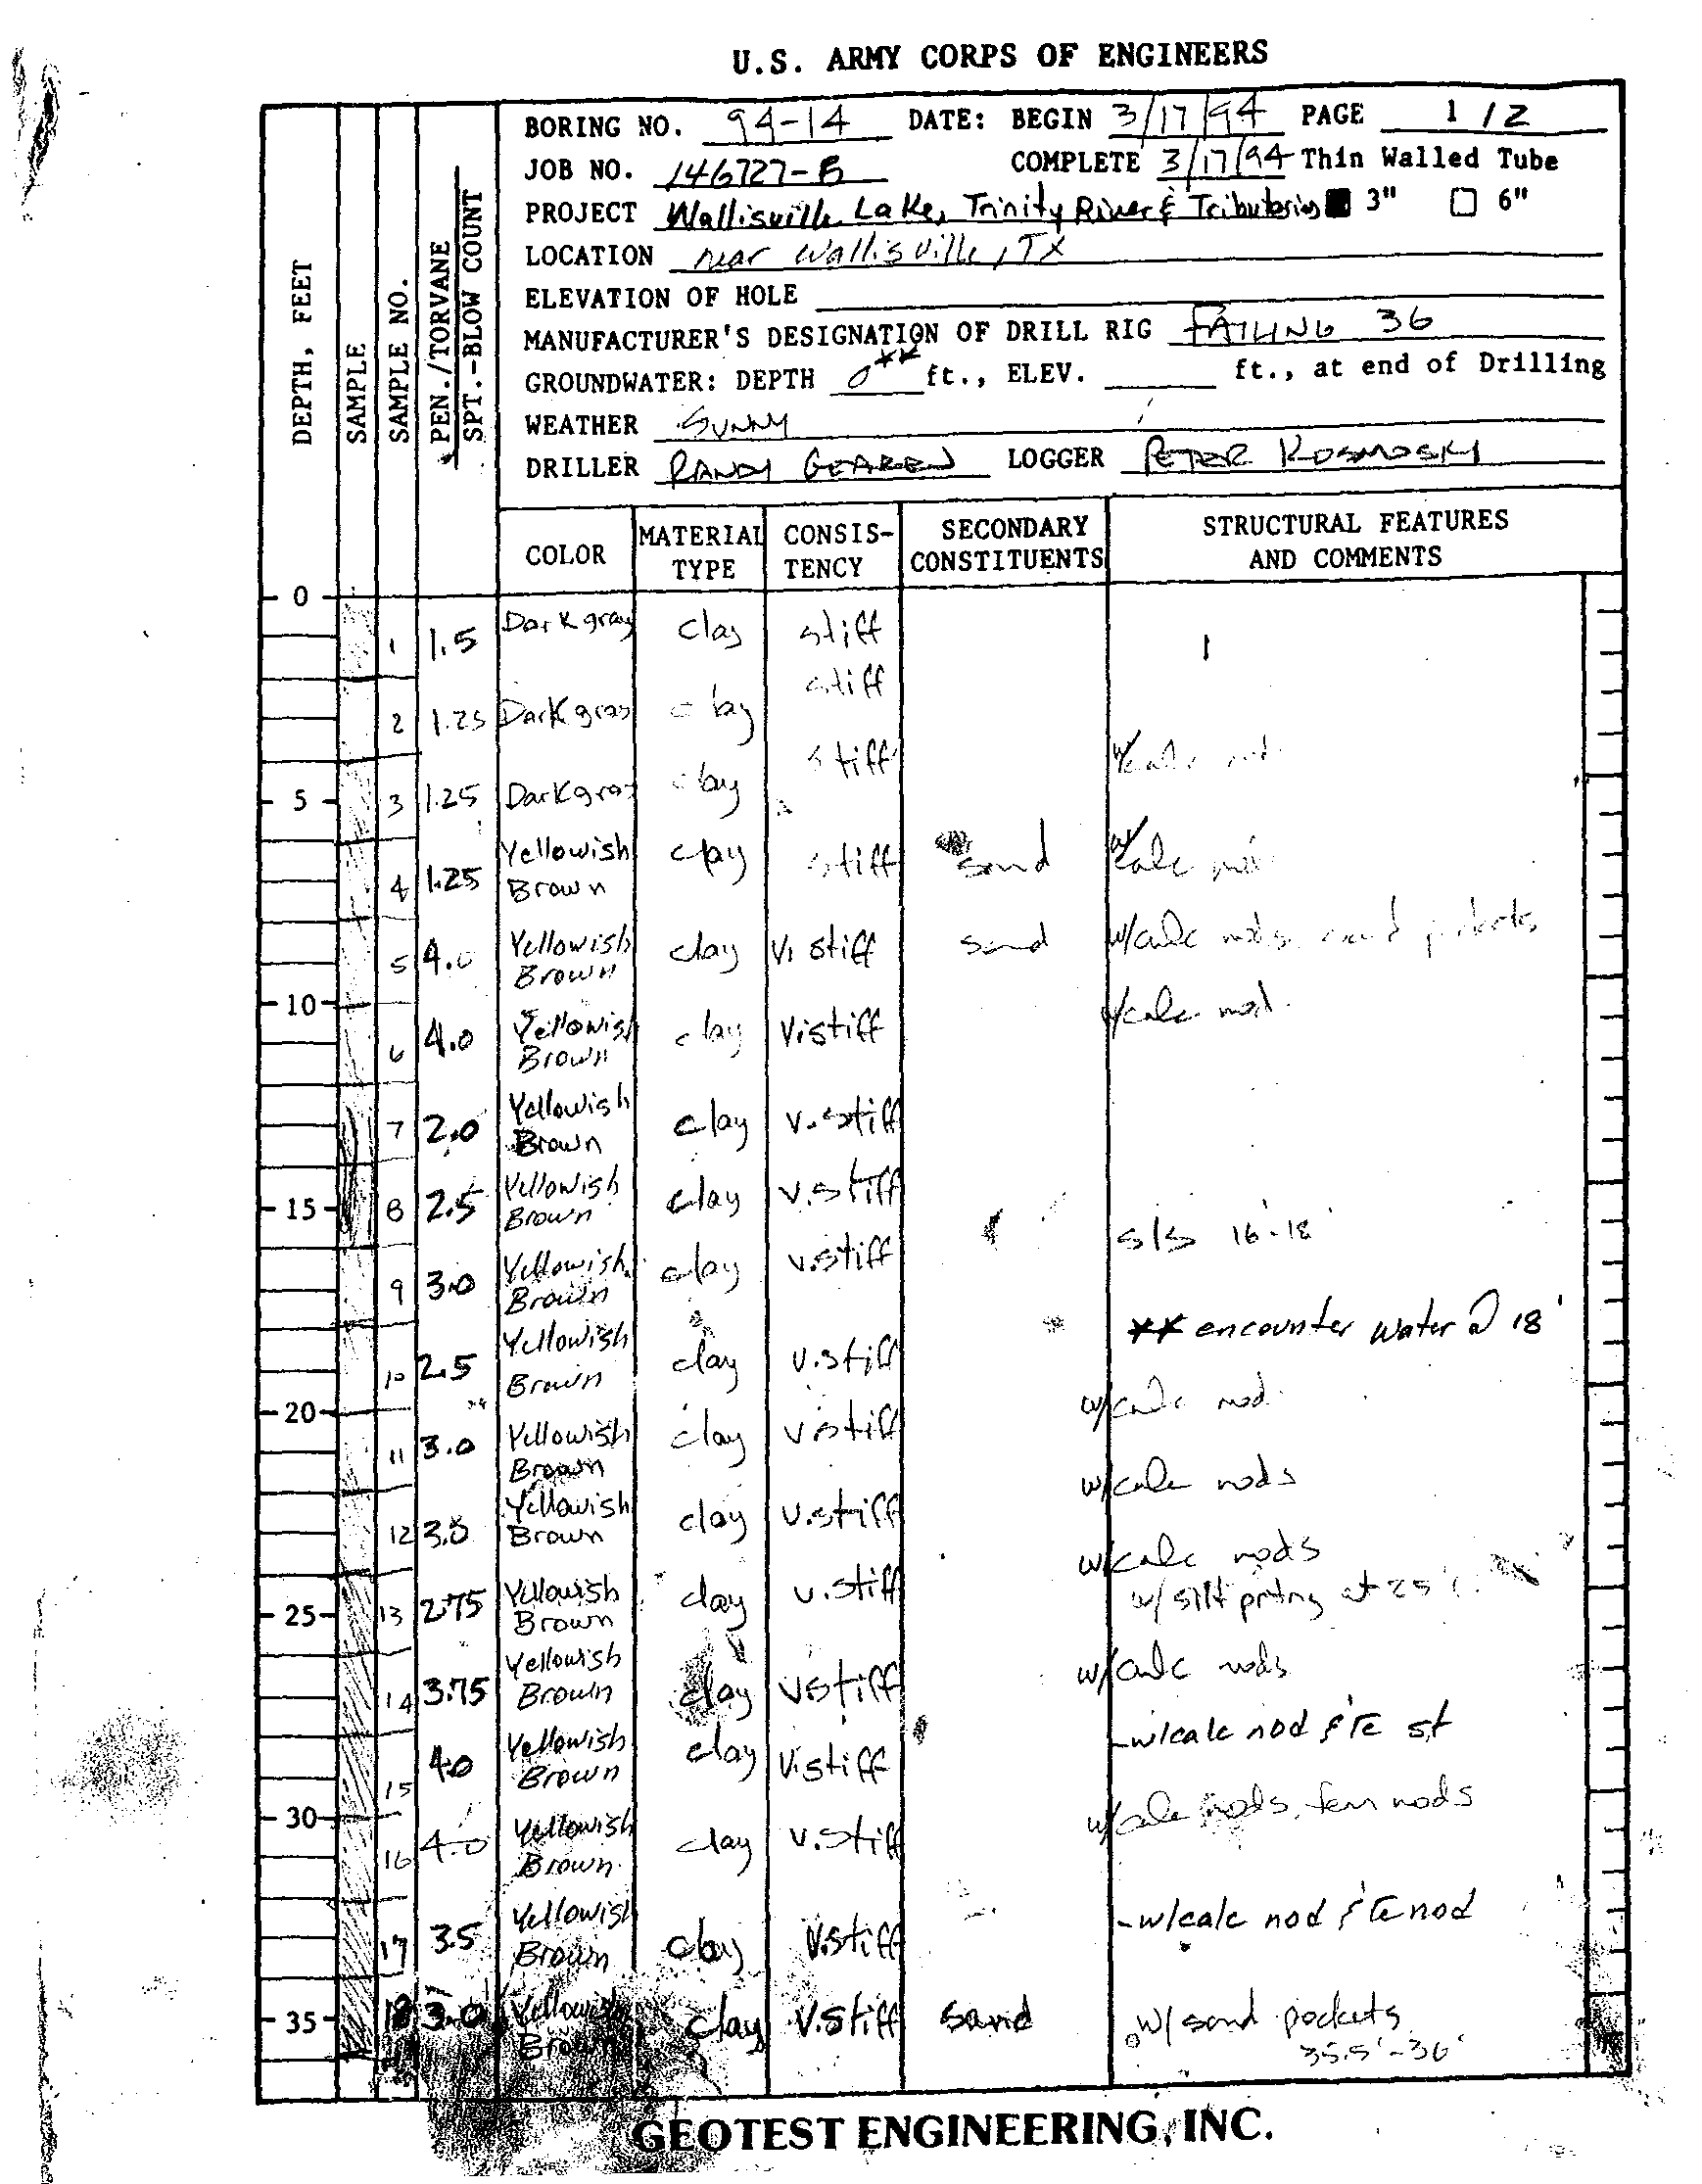 U.S. ARMY CORPS OF ENGINEERS
BORING NO. 94-14 DATE: BEGIN 3/17/94 PAGE 1/2
JOB NO. 146727-B COMPLETE 3/17/94 Thin Walled Tube
PROJECT Wallisville Lake, Trinity River & Tributaries 3" 6"
LOCATION near Wallisville, TX
ELEVATION OF HOLE
MANUFACTURER'S DESIGNATION OF DRILL RIG FAILING 36
GROUNDWATER: DEPTH 0** ft., ELEV. ft., at end of Drilling
WEATHER SUNNY
DRILLER RANDY GEAREN LOGGER PETER KOSMOSKY
DEPTH, FEET
SAMPLE
SAMPLE NO.
PEN./TORVANE
SPT.-BLOW COUNT
COLOR MATERIAL TYPE CONSIS-TENCY SECONDARY CONSTITUENTS STRUCTURAL FEATURES AND COMMENTS
0
1 1.5 Dark gray clay stiff
2 1.25 Dark gray clay stiff
w/calc nod.
5 3 1.25 Dark gray clay stiff
4 1.25 Yellowish Brown clay stiff sand w/calc nod
5 4.0 Yellowish Brown clay V. stiff sand w/calc nods, sand pockets
10
6 4.0 Yellowish Brown clay V. stiff w/calc nod.
7 2.0 Yellowish Brown clay v. stiff
15 8 2.5 Yellowish Brown clay v. stiff
s/s 16-18'
9 3.0 Yellowish Brown clay v. stiff
** encounter water @ 18'
10 2.5 Yellowish Brown clay v. stiff
20 w/calc nod.
11 3.0 Yellowish Brown clay v stiff
w/calc nods
12 3.0 Yellowish Brown clay v. stiff
w/calc nods
25 13 2.75 Yellowish Brown clay v. stiff w/ silt prtng at 25'
14 3.75 Yellowish Brown clay v stiff w/calc nods
15 4.0 Yellowish Brown clay V. stiff -w/calc nod & fe st
30 w/calc nods, ferr nods
16 4.0 Yellowish Brown clay v. stiff
17 3.5 Yellowish Brown clay V. stiff -w/calc nod & fe nod
35 18 3.0 Yellowish Brown clay V. stiff sand w/ sand pockets
35.5'-36'
GEOTEST ENGINEERING, INC.